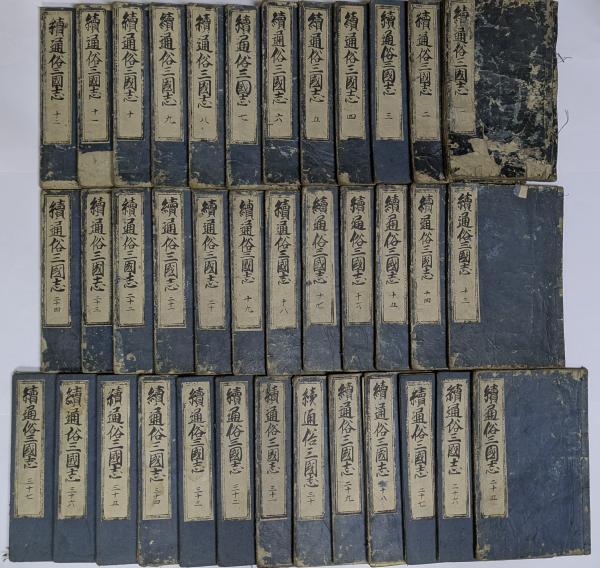 續通俗三國志
續通俗三國志 二
續通俗三國志 三
續通俗三國志 四
續通俗三國志 五
續通俗三國志 六
續通俗三國志 七
續通俗三國志 八
續通俗三國志 九
續通俗三國志 十
續通俗三國志 十一
續通俗三國志 十二
續通俗三國志 十三
續通俗三國志 十四
續通俗三國志 十五
續通俗三國志 十六
續通俗三國志 十七
續通俗三國志 十八
續通俗三國志 十九
續通俗三國志 二十
續通俗三國志 二十一
續通俗三國志 二十二
續通俗三國志 二十三
續通俗三國志 二十四
續通俗三國志 二十五
續通俗三國志 二十六
續通俗三國志 二十七
續通俗三國志 二十八
續通俗三國志 二十九
續通俗三國志 三十
續通俗三國志 三十一
續通俗三國志 三十二
續通俗三國志 三十三
續通俗三國志 三十四
續通俗三國志 三十五
續通俗三國志 三十六
續通俗三國志 三十七